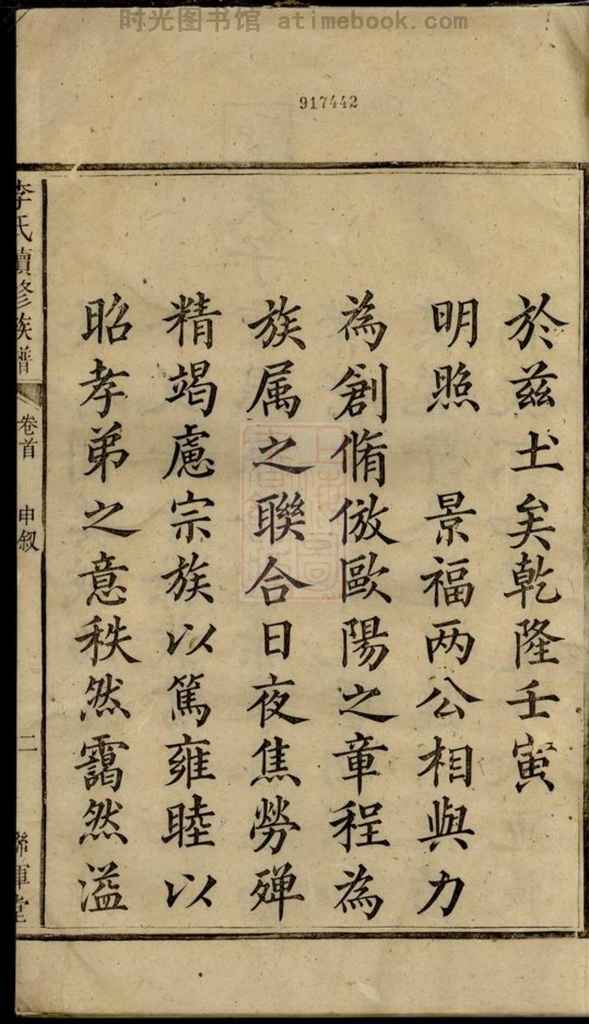 时光图书馆 atimebook.com
917442
於茲土矣乾隆壬寅
明照 景福两公相與力
為創脩倣歐陽之章程為
族属之聯合日夜焦勞殫
精竭慮宗族以篤雍睦以
昭孝弟之意秩然靄然溢
李氏續修族譜
卷首 申叙
二